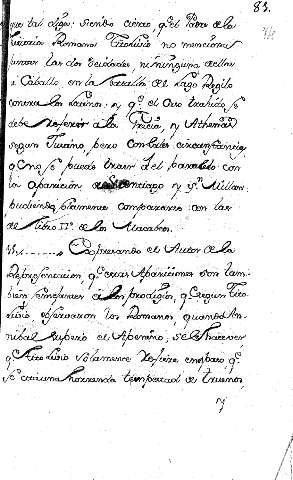 83.
que tal diga: siendo cierto q.e el Padre de la
Historia Romana Titolivio no menciona
juntas las dos Deidades, ni ninguna de ellas
a Caballo, en la batalla del Lago Regilo
contra los latinos: y q.e el otro trahido, se
debe referir a la Grecia, y Athenas
segun Justino, pero con tales circunstancias
q.e no se puede traer del paralelo con
la aparicion de Santiago y S.n Millan
pudiendo solamente compararse con las
de el libro II.o de los Macabeos.
Expresando el Autor de la
Representacion, q.e estas Apariciones son tam-
bien semejantes a los prodigios, q.e segun Tito
Livio, observaron los Romanos, quando An-
nibal superó el Apenino; se
q.e Titolivio solamente refiere en esto q.e
se una horrenda tempestad de truenos,
y